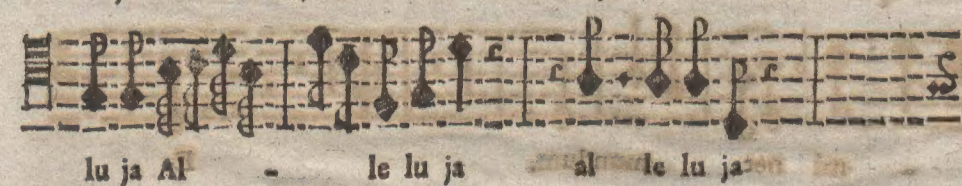 lu ja Al - le lu ja al le lu ja